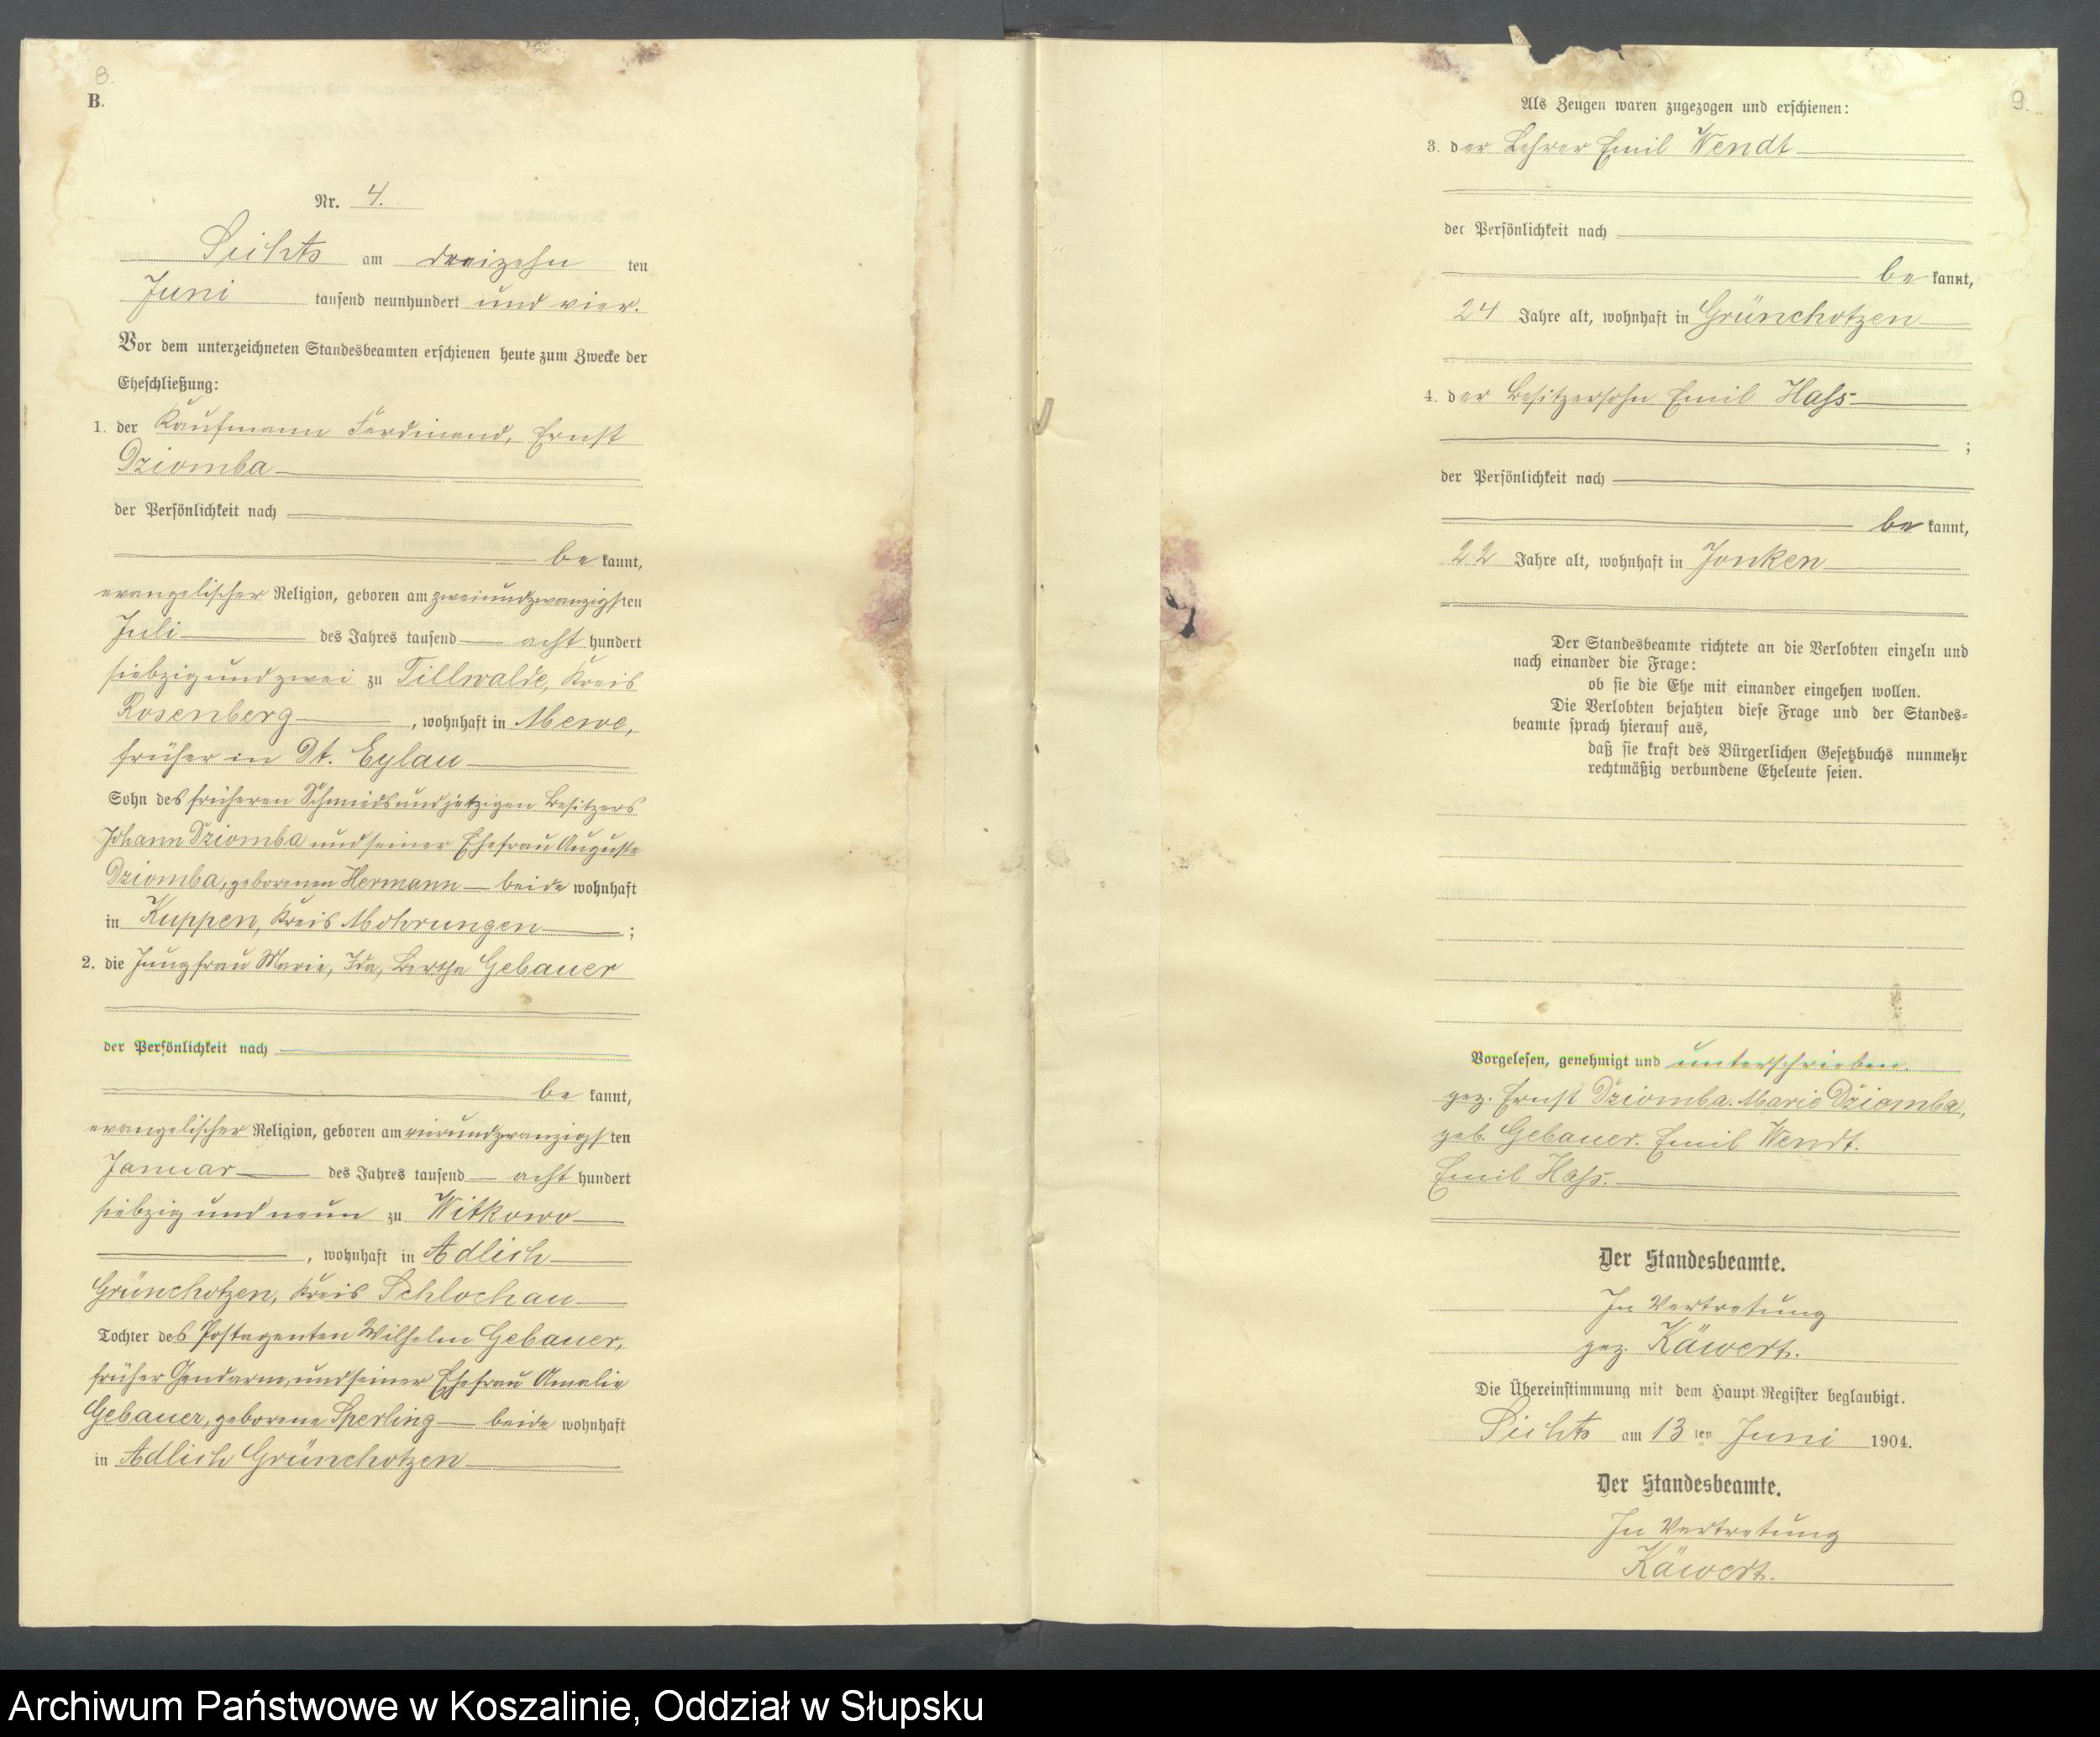 8.
B.
Nr. 4.
Sichts am dreizehn ten
Juni tausend neunhundert und vier.
Vor dem unterzeichneten Standesbeamten erschienen heute zum Zwecke der
Eheschließung:
1. der Kaufmann Ferdinand, Ernst
Dziomba
der Persönlichkeit nach
be kannt,
evangelischer Religion, geboren am zweiundzwanzigsten
Juli des Jahres tausend acht hundert
siebzig und zwei zu Tillwalde, Kreis
Rosenberg, wohnhaft in Mewe,
früher in Dt. Eylau
Sohn des früheren Schmieds und jetzigen Besitzers
Johann Dziomba und seiner Ehefrau Auguste
Dziomba, geborenen Hermann beide wohnhaft
in Kuppen, Kreis Mohrungen;
2. die Jungfrau Marie, Ida, Bertha Gebauer
der Persönlichkeit nach
be kannt,
evangelischer Religion, geboren am vierundzwanzigsten
Januar des Jahres tausend acht hundert
siebzig und neun zu Witkowo
, wohnhaft in Adlich
Grünchotzen, Kreis Schlochau
Tochter des Postagenten Wilhelm Gebauer,
früher Gendarm, und seiner Ehefrau Amalie
Gebauer, geborene Sperling beide wohnhaft
in Adlich Grünchotzen
9.
Als Zeugen waren zugezogen und erschienen:
3. der Lehrer Emil Wendt
der Persönlichkeit nach
be kannt,
24 Jahre alt, wohnhaft in Grünchotzen
4. der Besitzersohn Emil Hass
;
der Persönlichkeit nach
be kannt,
22 Jahre alt, wohnhaft in Jonken
Der Standesbeamte richtete an die Verlobten einzeln und
nach einander die Frage:
ob sie die Ehe mit einander eingehen wollen.
Die Verlobten bejahten diese Frage und der Standes-
beamte sprach hierauf aus,
daß sie kraft des Bürgerlichen Gesetzbuchs nunmehr
rechtmäßig verbundene Eheleute seien.
Vorgelesen, genehmigt und unterschrieben.
gez. Ernst Dziomba. Marie Dziomba,
geb. Gebauer. Emil Wendt.
Emil Hass.
Der Standesbeamte.
In Vertretung
gez. Käwert.
Die Übereinstimmung mit dem Haupt-Register beglaubigt.
Sichts am 13 ten Juni 1904.
Der Standesbeamte.
In Vertretung
Käwert.
Archiwum Państwowe w Koszalinie, Oddział w Słupsku